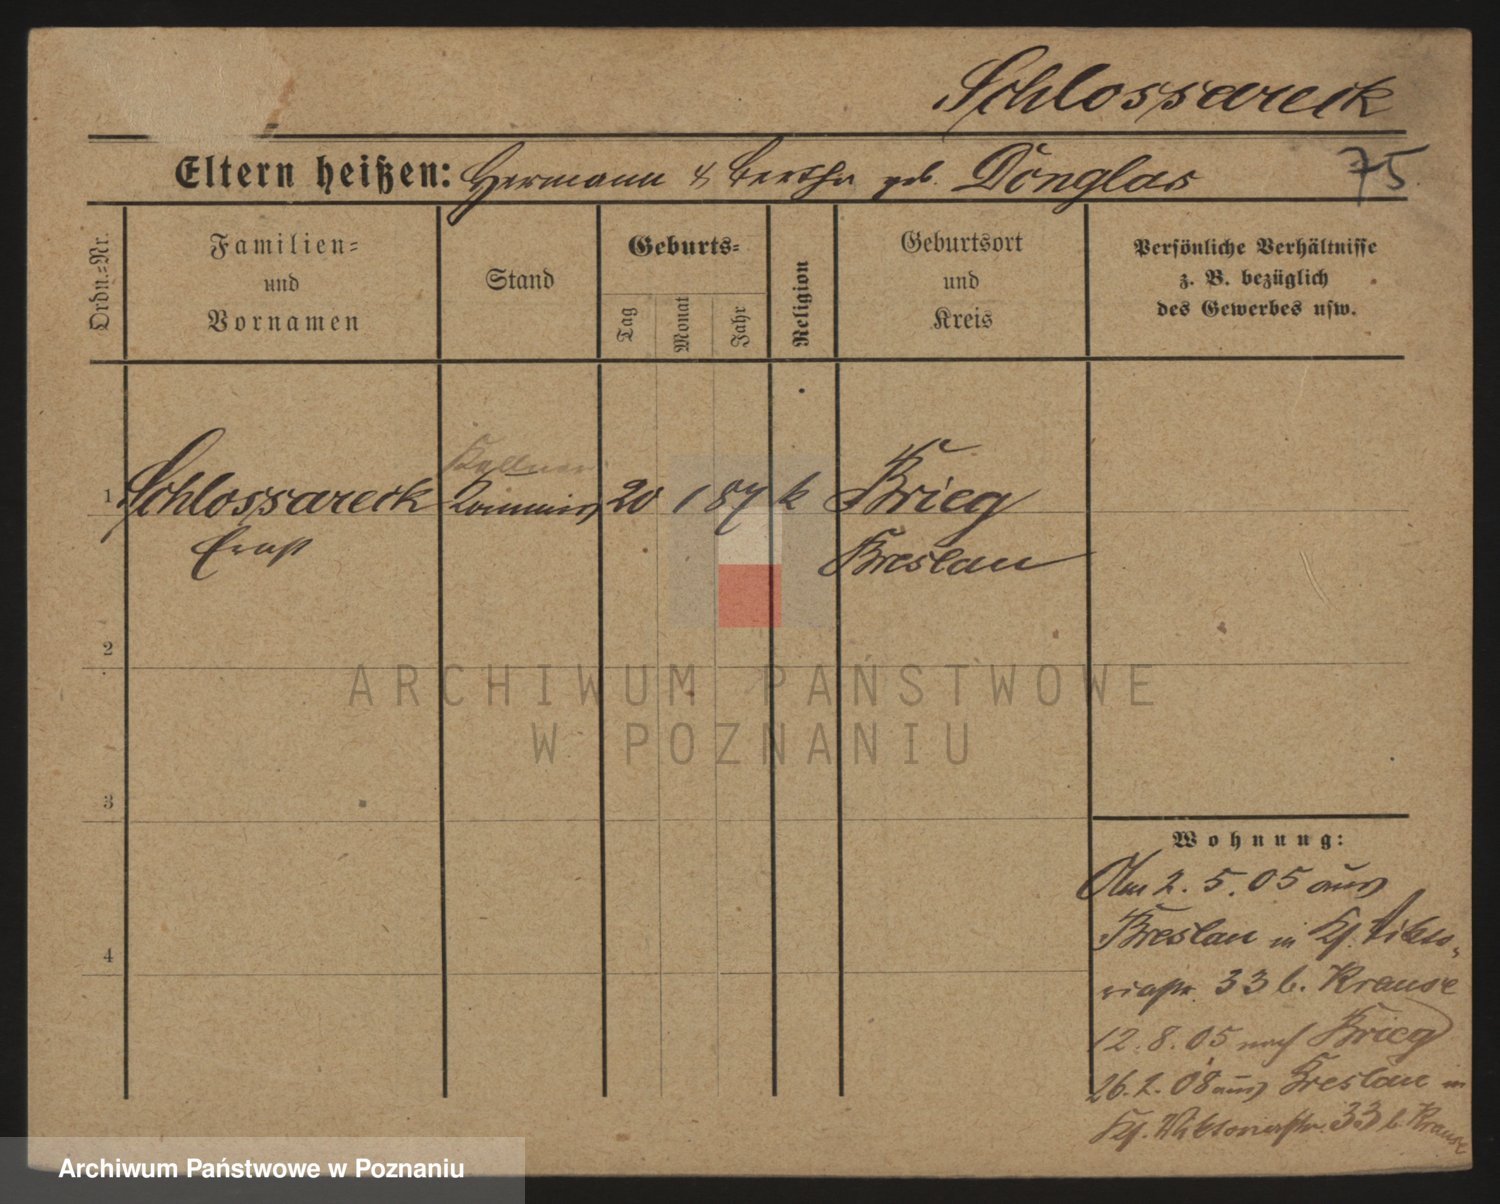 Schlossareck
Eltern heißen: Hermann & Bertha geb. Donglas
75
Ordn.=Nr.
Familien=
und
Vornamen
Stand
Geburts=
Tag
Monat
Jahr
Religion
Geburtsort
und
Kreis
Persönliche Verhältnisse
z. B. bezüglich
des Gewerbes usw.
Kellner
1 Schlossareck Commis 20 1 87 k Brieg
Ernst Breslau
2
ARCHIWUM PAŃSTWOWE
W POZNANIU
3
Wohnung:
Am 2. 5. 05 aus
Breslau in Kf. Vikto-
riastr. 33 b. Krause
4
12. 8. 05 nach Brieg
26. 2. 08 aus Breslau in
Kf. Viktoriastr. 33 b Krause
Archiwum Państwowe w Poznaniu